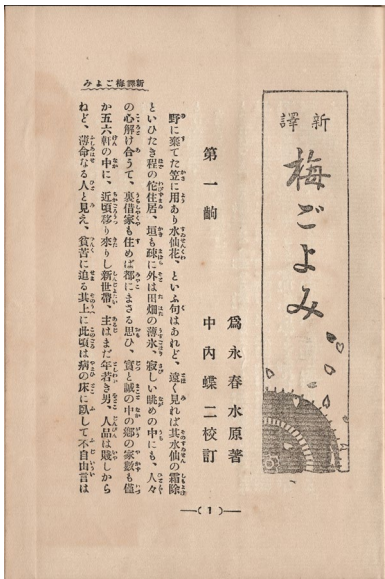 新譯
梅ごよみ
爲永春水原著
中内蝶二校訂
第一齣
野に棄てた笠に用あり水仙花、といふ句はあれど、遠く見れば其水仙の霜除
といひたき程の佗住居、垣も疎に外は田畑の薄氷、寂しい眺めの中にも、人々
の心解け合うて、裏借家も住めば都にまさる思ひ、實と誠の中の郷の家數も僅
か五六軒の中に、近頃移り來りし新世帶、主はまだ年若き男、人品は賤しから
ねど、薄命なる人と見え、貧苦に迫る其上に此頃は病の床に臥して不自由言は
新譯梅ごよみ
(1)